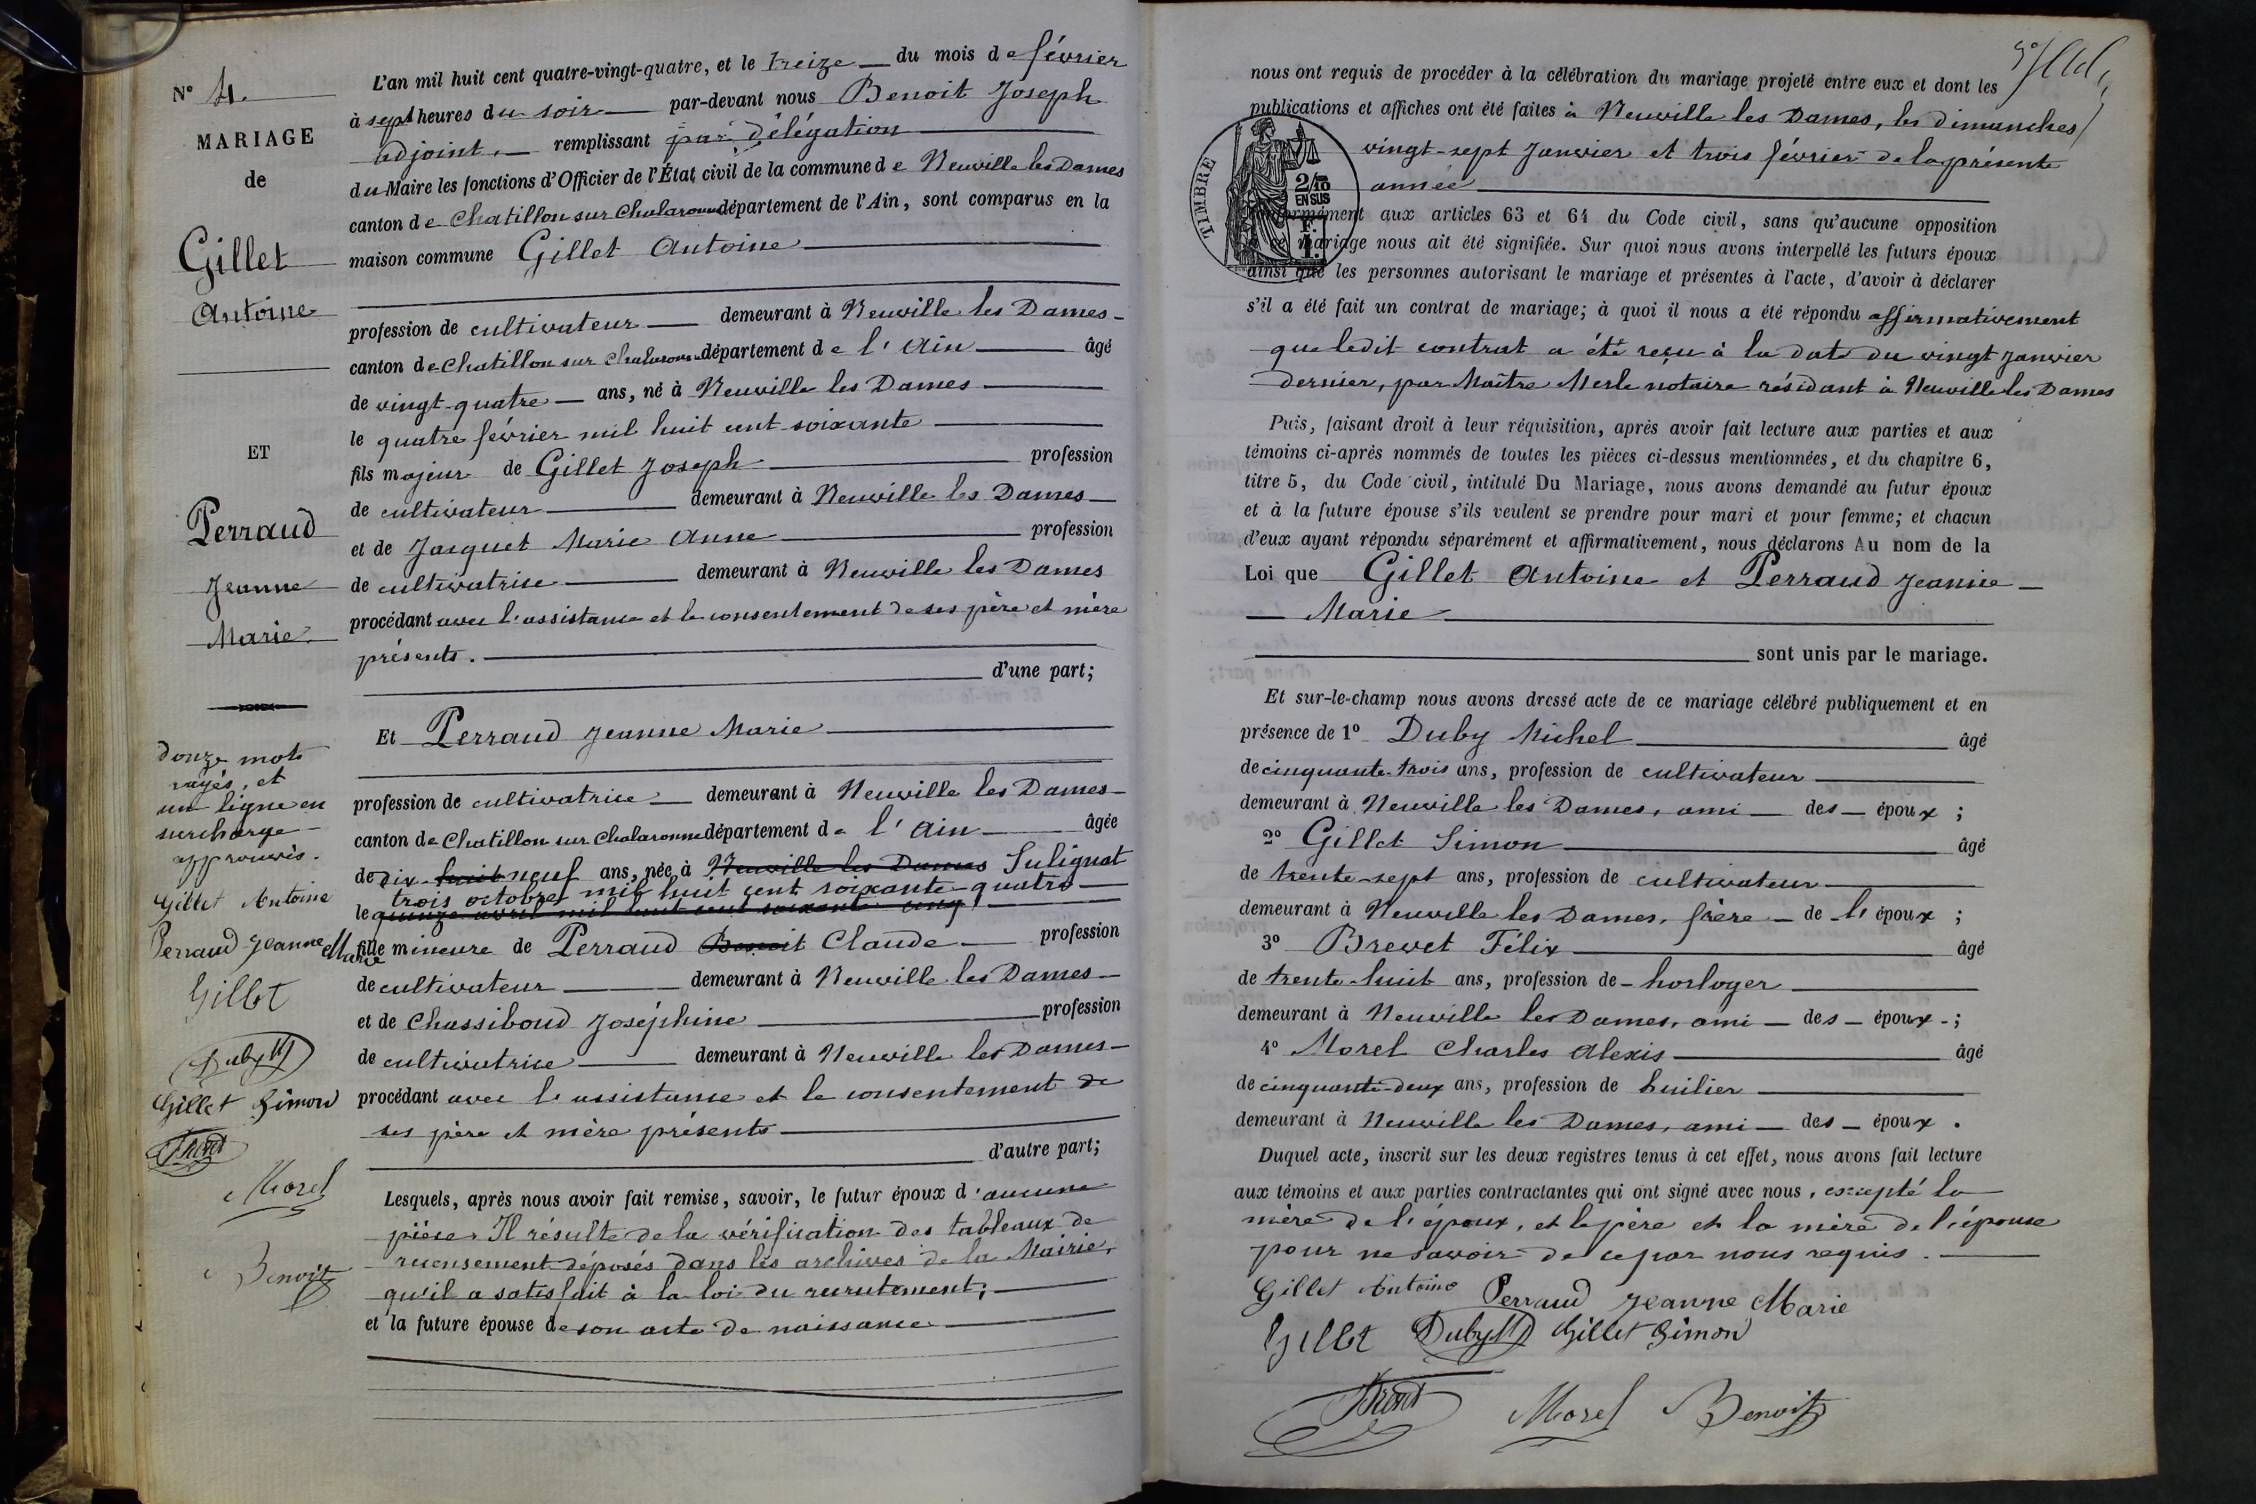 N° 4.
MARIAGE
de
Gillet
Antoine
ET
Perraud
Jeanne
Marie.
Douze mots
rayés, et
une ligne en
surcharge
approuvés.
Gillet Antoine
Perraud Jeanne Marie
Gillet
Duby M
Gillet Simon
Morel
Benoit
L'an mil huit cent quatre-vingt-quatre, et le treize du mois de février
à sept heures du soir par-devant nous Benoit Joseph
adjoint, remplissant par délégation
du Maire les fonctions d'Officier de l'État civil de la commune de Neuville les Dames
canton de Chatillon sur Chalaronne département de l'Ain, sont comparus en la
maison commune Gillet Antoine
profession de cultivateur demeurant à Neuville les Dames
canton de Chatillon sur Chalaronne département de l'Ain âgé
de vingt-quatre ans, né à Neuville les Dames
le quatre février mil huit cent soixante
fils majeur de Gillet Joseph profession
de cultivateur demeurant à Neuville les Dames
et de Jacquet Marie Anne profession
de cultivatrice demeurant à Neuville les Dames
procédant avec l'assistance et le consentement de ses père et mère
présents.
d'une part;
Et Perraud Jeanne Marie
profession de cultivatrice demeurant à Neuville les Dames
canton de Chatillon sur Chalaronne département de l'Ain âgée
de dix huit neuf ans, née à Neuville les Dames Sulignat
trois octobre mil huit cent soixante-quatre
le quinze avril mil huit cent soixante cinq
fille mineure de Perraud Benoit Claude profession
de cultivateur demeurant à Neuville les Dames
et de Chassiboud Joséphine profession
de cultivatrice demeurant à Neuville les Dames
procédant avec l'assistance et le consentement de
ses père et mère présents
d'autre part;
Lesquels, après nous avoir fait remise, savoir, le futur époux d'aucune
pièce. Il résulte de la vérification des tableaux de
recensement déposés dans les archives de la Mairie,
qu'il a satisfait à la loi du recrutement;
et la future épouse de son acte de naissance
nous ont requis de procéder à la célébration du mariage projeté entre eux et dont les
publications et affiches ont été faites à Neuville les Dames, les dimanches
vingt-sept Janvier et trois février de la présente
année
TIMBRE
2/10
EN SUS
F.
1.
conformément aux articles 63 et 64 du Code civil, sans qu'aucune opposition
mariage nous ait été signifiée. Sur quoi nous avons interpellé les futurs époux
ainsi que les personnes autorisant le mariage et présentes à l'acte, d'avoir à déclarer
s'il a été fait un contrat de mariage; à quoi il nous a été répondu affirmativement
que ledit contrat a été reçu à la date du vingt Janvier
dernier, par Maître Merle notaire résidant à Neuville les Dames
Puis, faisant droit à leur réquisition, après avoir fait lecture aux parties et aux
témoins ci-après nommés de toutes les pièces ci-dessus mentionnées, et du chapitre 6,
titre 5, du Code civil, intitulé Du Mariage, nous avons demandé au futur époux
et à la future épouse s'ils veulent se prendre pour mari et pour femme; et chacun
d'eux ayant répondu séparément et affirmativement, nous déclarons Au nom de la
Loi que Gillet Antoine et Perraud Jeanne
Marie
sont unis par le mariage.
Et sur-le-champ nous avons dressé acte de ce mariage célébré publiquement et en
présence de 1° Duby Michel âgé
de cinquante-trois ans, profession de cultivateur
demeurant à Neuville les Dames, ami des époux ;
2° Gillet Simon âgé
de trente-sept ans, profession de cultivateur
demeurant à Neuville les Dames, frère de l'époux ;
3° Brevet Félix âgé
de trente-huit ans, profession de horloger
demeurant à Neuville les Dames, ami des époux ;
4° Morel Charles Alexis âgé
de cinquante-deux ans, profession de huilier
demeurant à Neuville les Dames, ami des époux.
Duquel acte, inscrit sur les deux registres tenus à cet effet, nous avons fait lecture
aux témoins et aux parties contractantes qui ont signé avec nous, excepté la
mère de l'époux, et le père et la mère de l'épouse
pour ne savoir de ce par nous requis.
Gillet Antoine Perraud Jeanne Marie
Gillet Duby M Gillet Simon
Morel Benoit